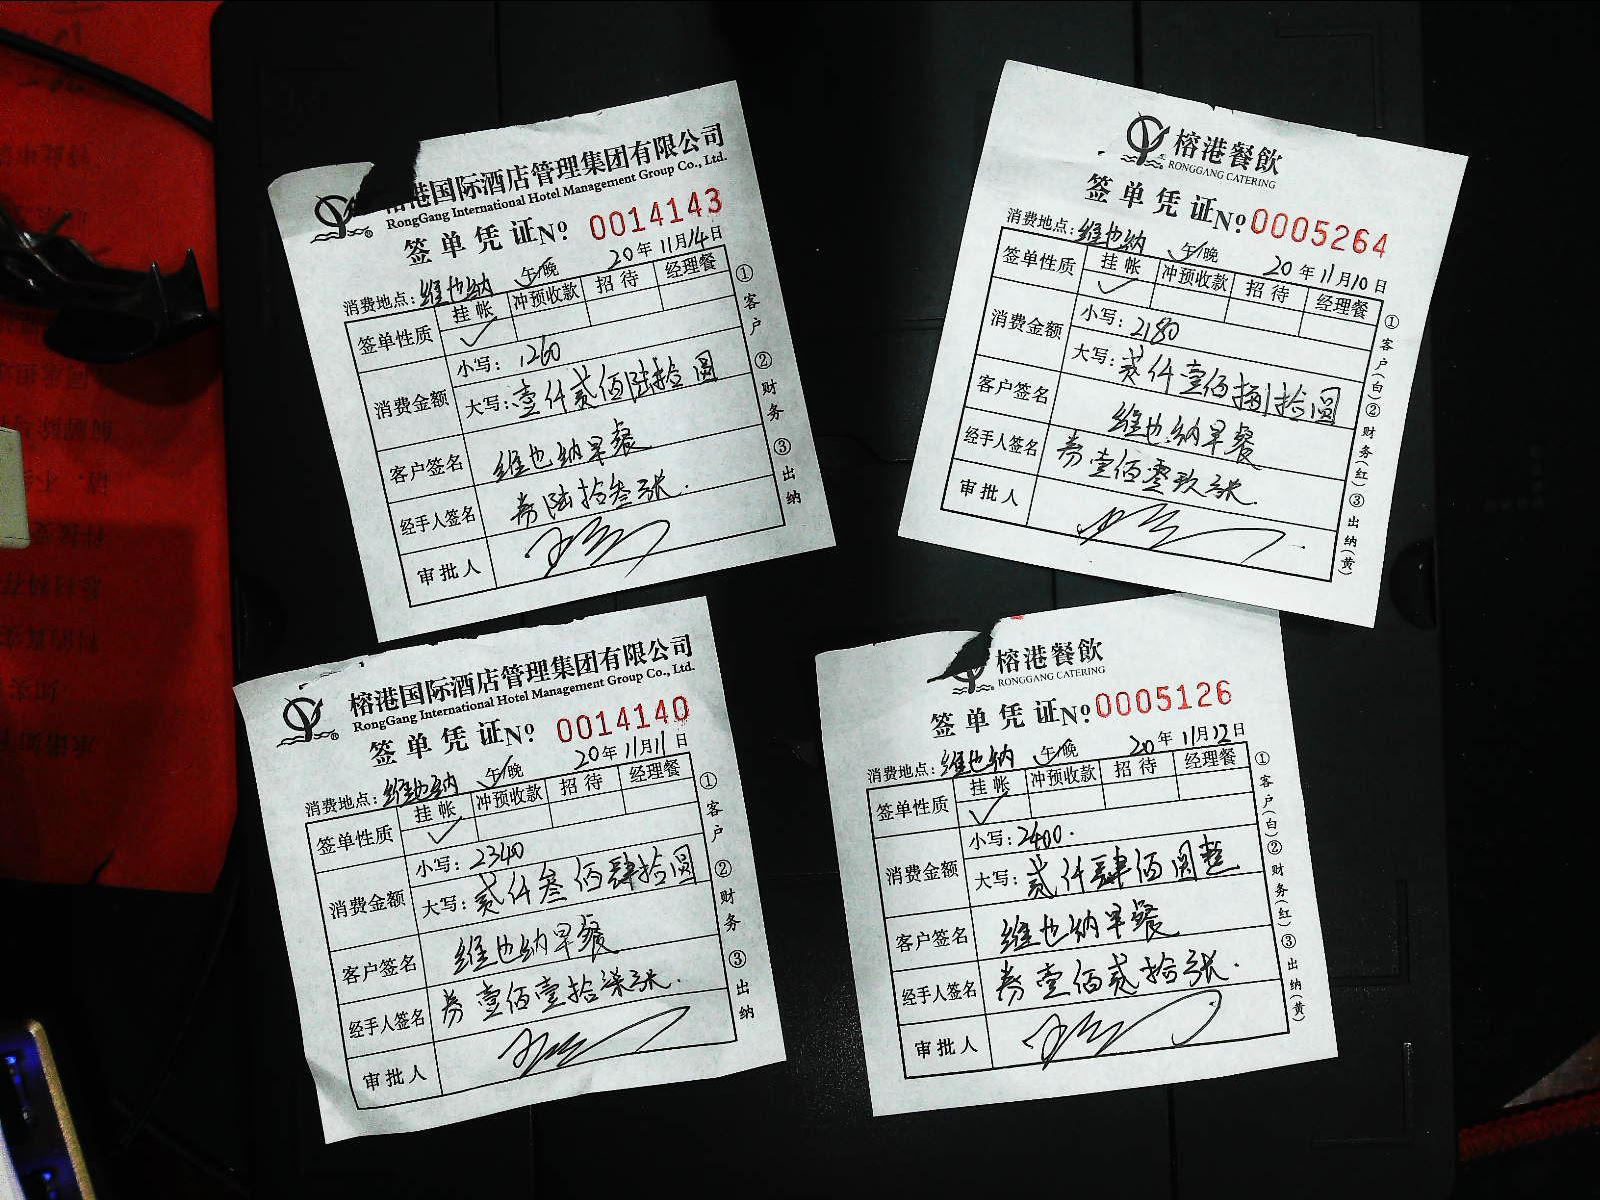 榕港国际酒店管理集团有限公司
RongGang International Hotel Management Group Co., Ltd.
签单凭证№ 0014143
消费地点: 维也纳 午/晚 20年11月14日
签单性质 挂帐 冲预收款 招待 经理餐
✓
消费金额 小写: 1260
大写: 壹仟贰佰陆拾圆
客户签名 维也纳早餐
经手人签名 券陆拾叁张.
审批人
①客户 ②财务 ③出纳
榕港餐飲
RONGGANG CATERING
签单凭证№ 0005264
消费地点: 维也纳 午/晚 20年11月10日
签单性质 挂帐 冲预收款 招待 经理餐
✓
消费金额 小写: 2180
大写: 贰仟壹佰捌拾圆
客户签名 维也纳早餐
经手人签名 券壹佰零玖张.
审批人
①客户(白) ②财务(红) ③出纳(黄)
榕港国际酒店管理集团有限公司
RongGang International Hotel Management Group Co., Ltd.
签单凭证№ 0014140
消费地点: 维也纳 午/晚 20年11月11日
签单性质 挂帐 冲预收款 招待 经理餐
✓
消费金额 小写: 2340
大写: 贰仟叁佰肆拾圆
客户签名 维也纳早餐
经手人签名 券壹佰壹拾柒张.
审批人
①客户 ②财务 ③出纳
榕港餐飲
RONGGANG CATERING
签单凭证№ 0005126
消费地点: 维也纳 午/晚 20年11月12日
签单性质 挂帐 冲预收款 招待 经理餐
✓
消费金额 小写: 2400.
大写: 贰仟肆佰圆整
客户签名 维也纳早餐
经手人签名 券壹佰贰拾张.
审批人
①客户(白) ②财务(红) ③出纳(黄)